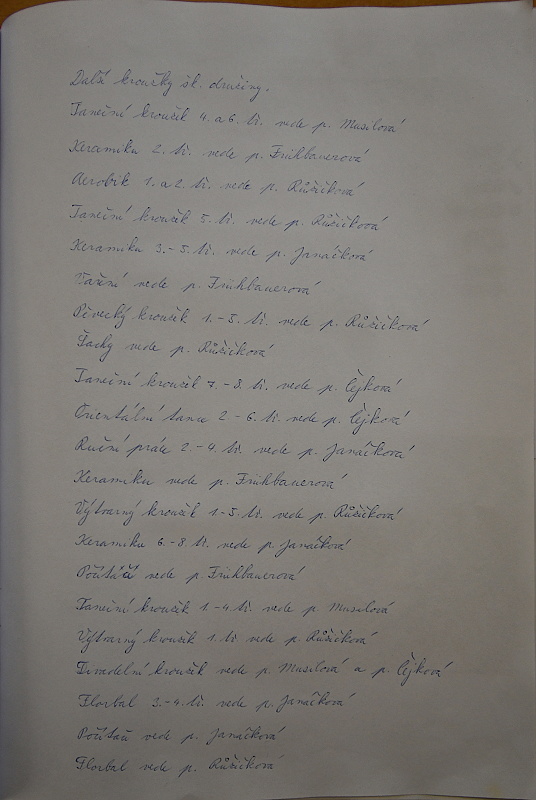 Další kroužky šk. družiny.
Taneční kroužek 4. a 6. tř. vede p. Musilová
Keramiku 2. tř. vede p. Frühbauerová
Aerobik 1. a 2. tř. vede p. Růžičková
Taneční kroužek 5. tř. vede p. Růžičková
Keramiku 3.-5. tř. vede p. Janáčková
Vaření vede p. Frühbauerová
Pěvecký kroužek 1.-5. tř. vede p. Růžičková
Šachy vede p. Růžičková
Taneční kroužek 7.-8. tř. vede p. Čejková
Orientální tanec 2-6. tř. vede p. Čejková
Ruční práce 2.-4. tř. vede p. Janáčková
Keramiku vede p. Frühbauerová
Výtvarný kroužek 1.-5. tř. vede p. Růžičková
Keramiku 6.-8. tř. vede p. Janáčková
Počítače vede p. Frühbauerová
Taneční kroužek 1.-4. tř. vede p. Musilová
Výtvarný kroužek 1. tř. vede p. Růžičková
Divadelní kroužek vede p. Musilová a p. Čejková
Florbal 3.-4. tř. vede p. Janáčková
Počítače vede p. Janáčková
Florbal vede p. Růžičková